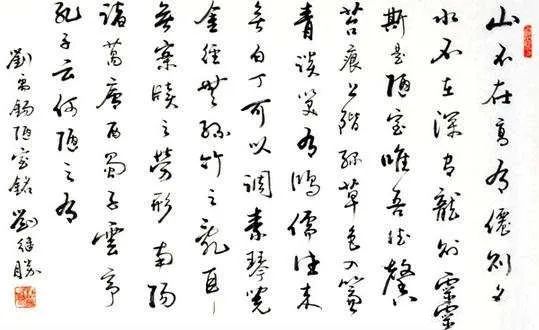 山不在高有僊則名
水不在深有龍則靈
斯是陋室唯吾德馨
苔痕上階綠草色入簾
青談笑有鴻儒往來
無白丁可以調素琴閱
金經無絲竹之亂耳
無案牘之勞形南陽
諸葛廬西蜀子雲亭
孔子云何陋之有
劉禹錫陋室銘 劉继勝